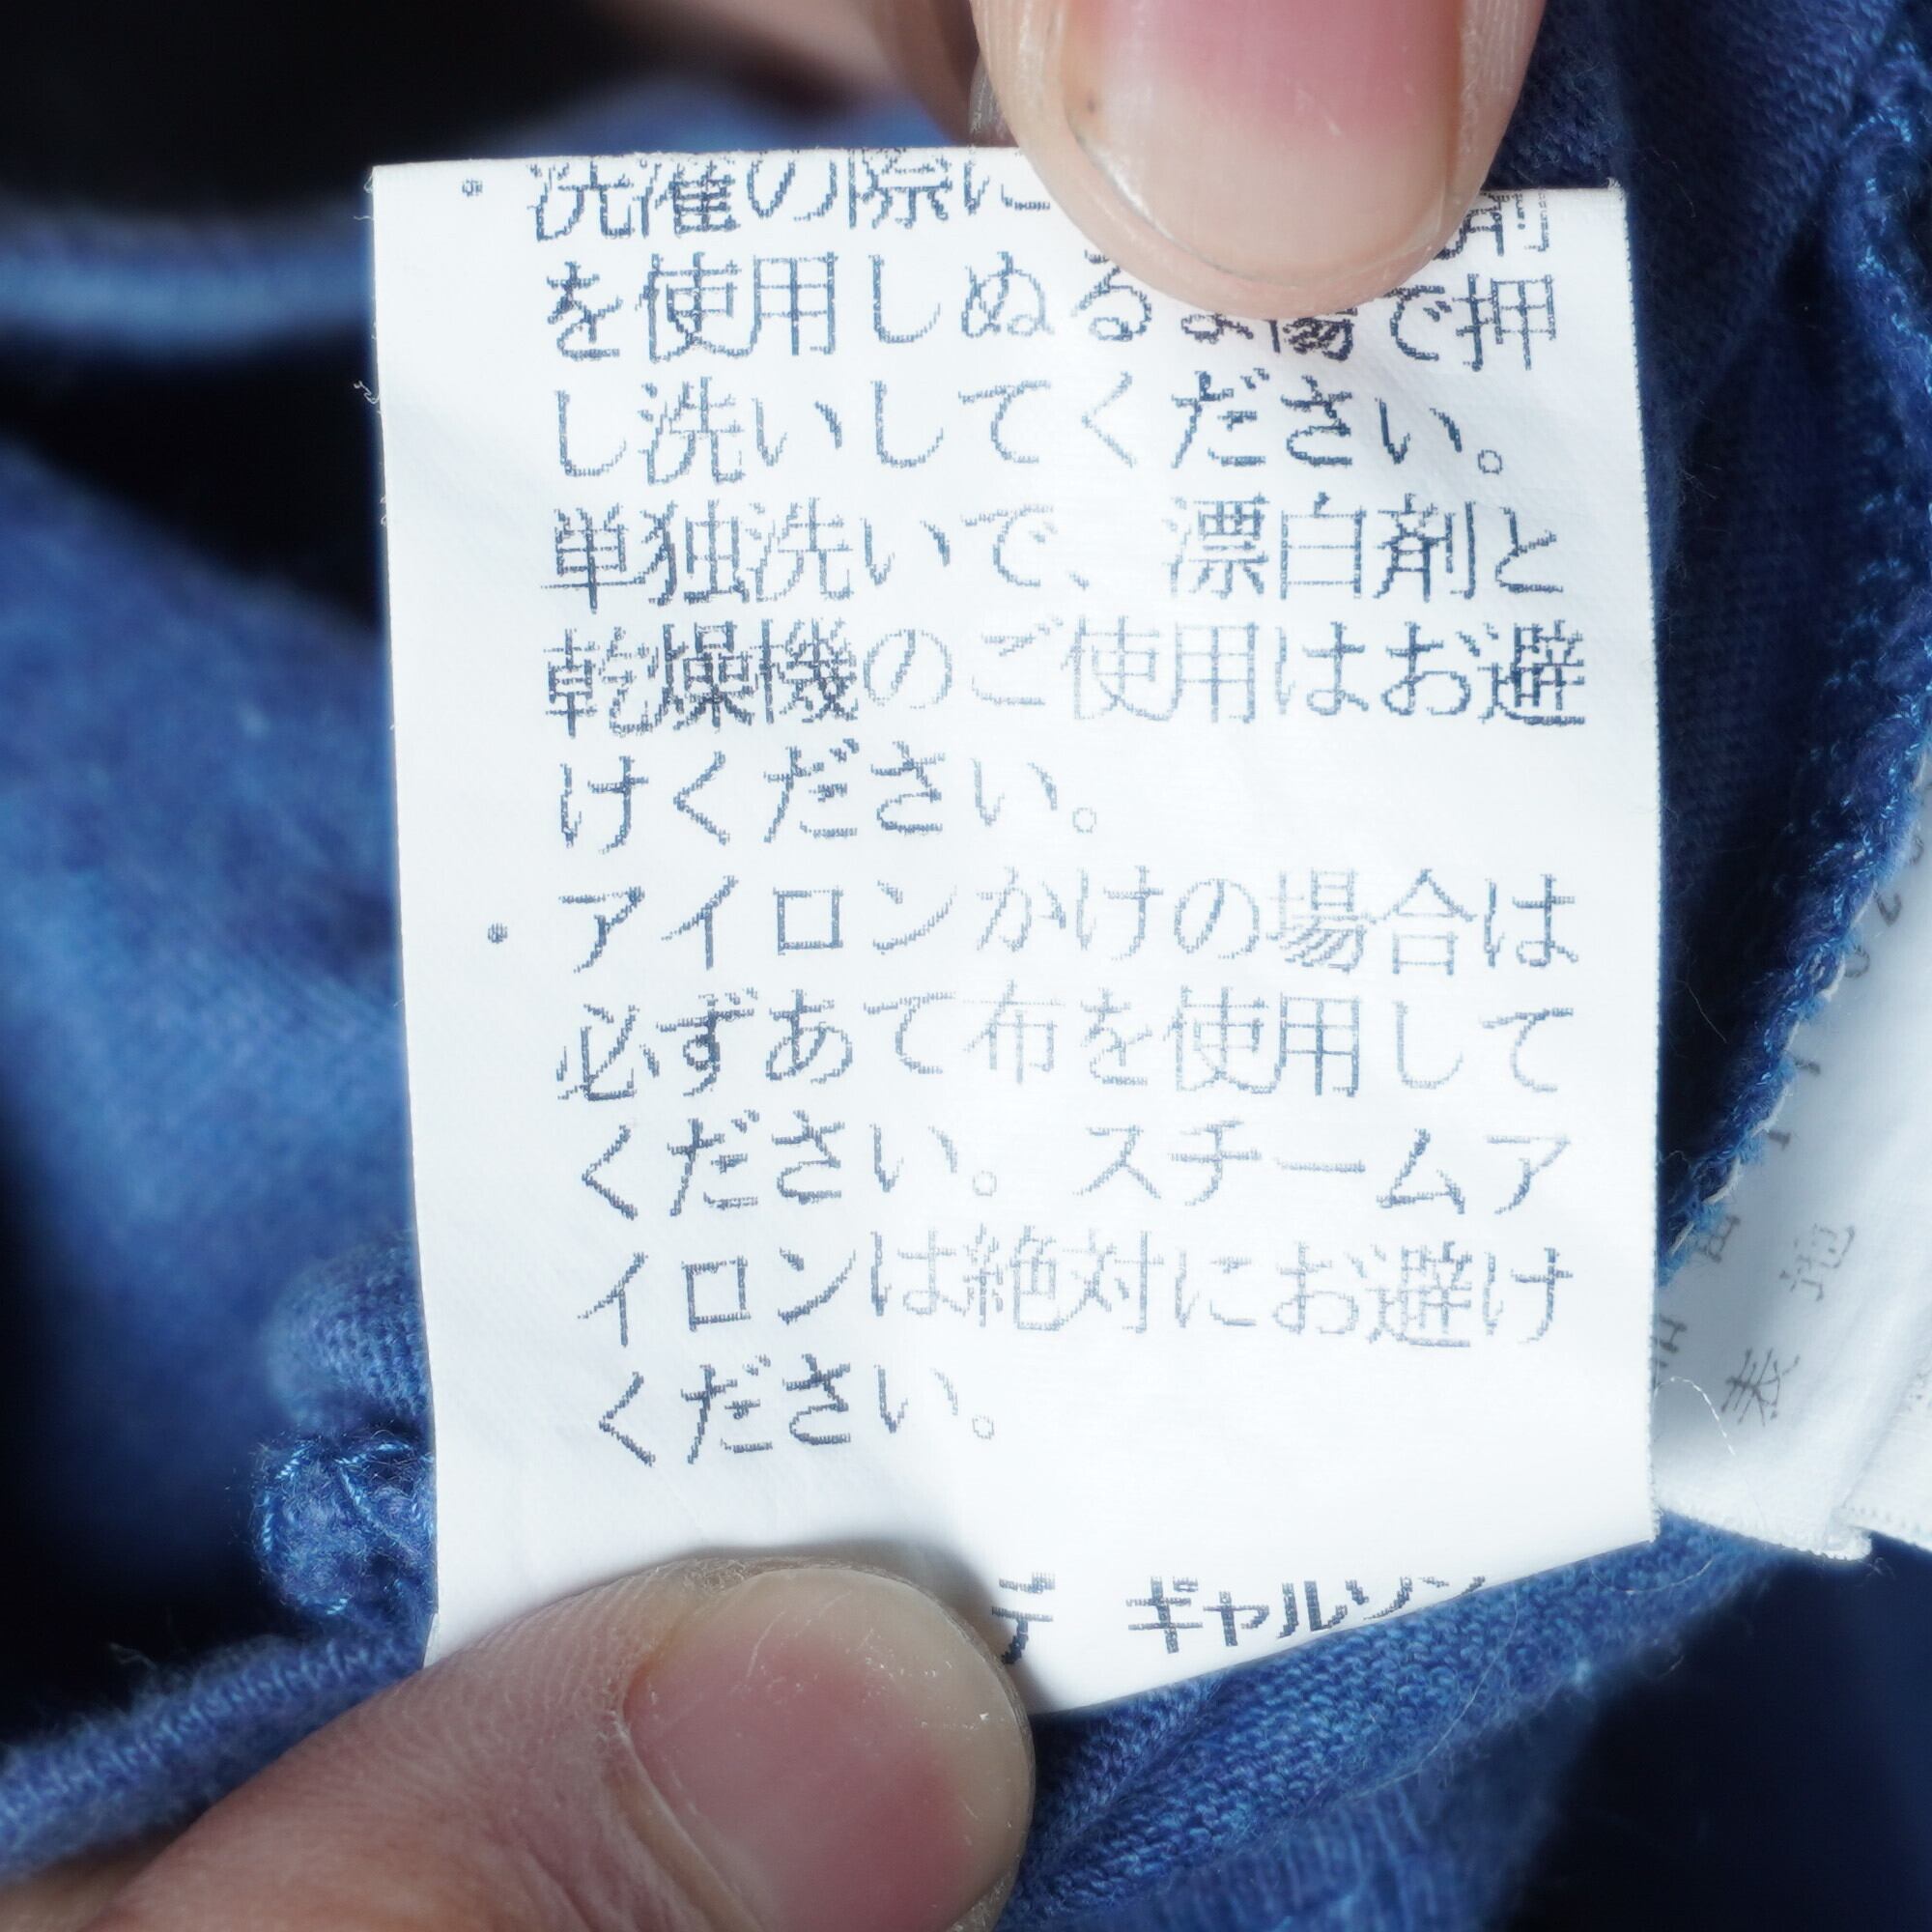 ・洗濯の際に 剤
を使用しぬるま湯で押
し洗いしてください。
単独洗いで、漂白剤と
乾燥機のご使用はお避
けください。
・アイロンかけの場合は
必ずあて布を使用して
ください。スチームア
イロンは絶対にお避け
ください。
デ ギャルソン